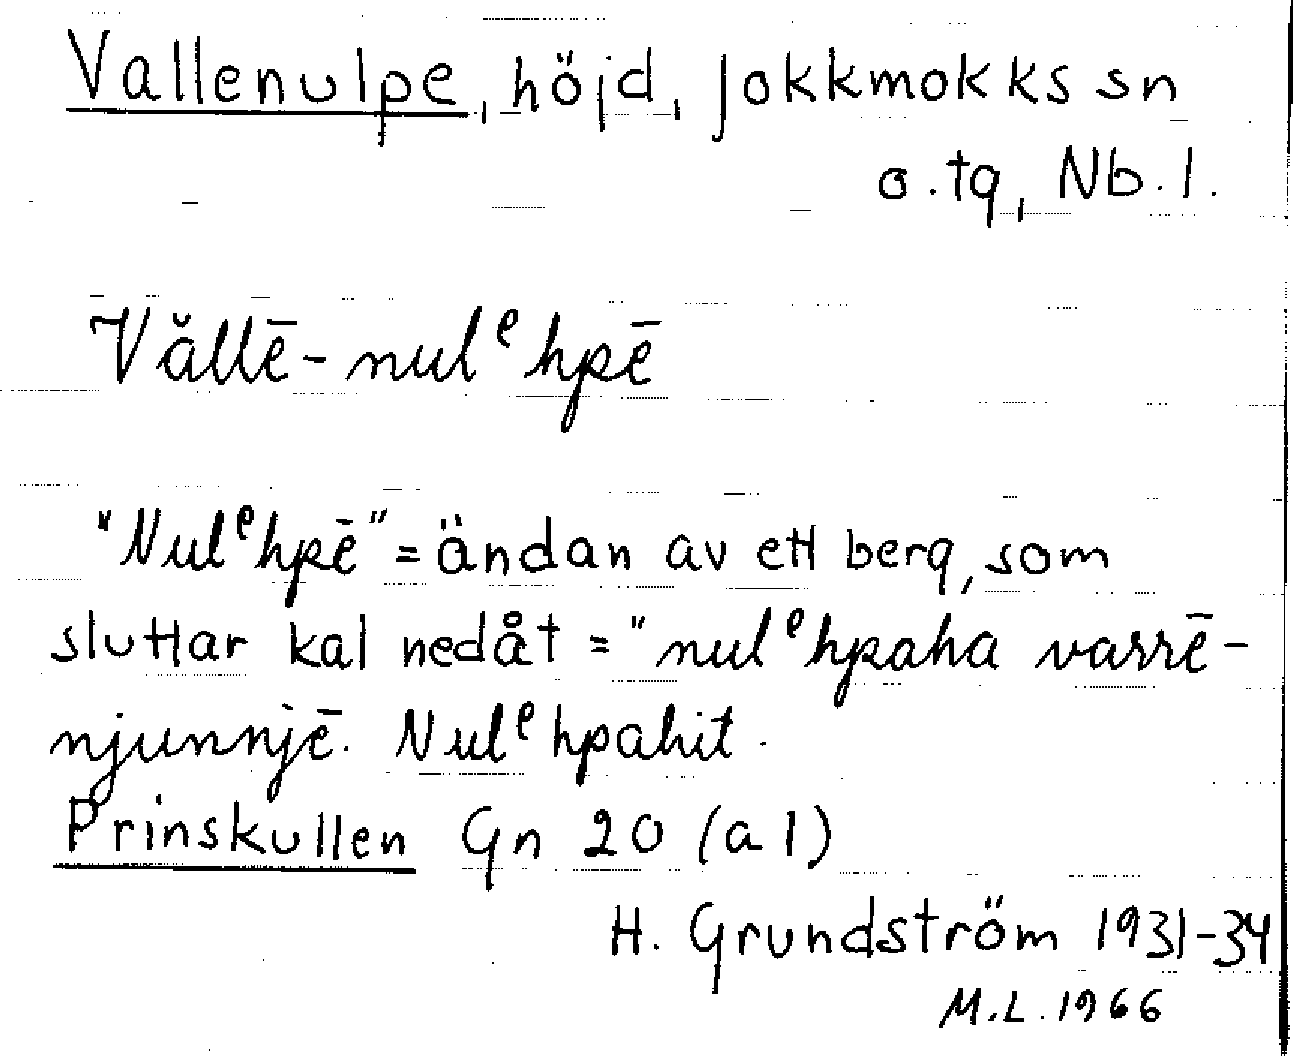 Vallenulpe, höjd, Jokkmokks sn
o. tg, Nb. l.
Văllē-nulᵉhpē
"Nulᵉhpē" = ändan av ett berg, som
sluttar kal nedåt = "nulᵉhpaha varrē-
njunnjē. Nulᵉhpahit.
Prinskullen Gn 20 (a 1)
H. Grundström 1931-34
M.L. 1966